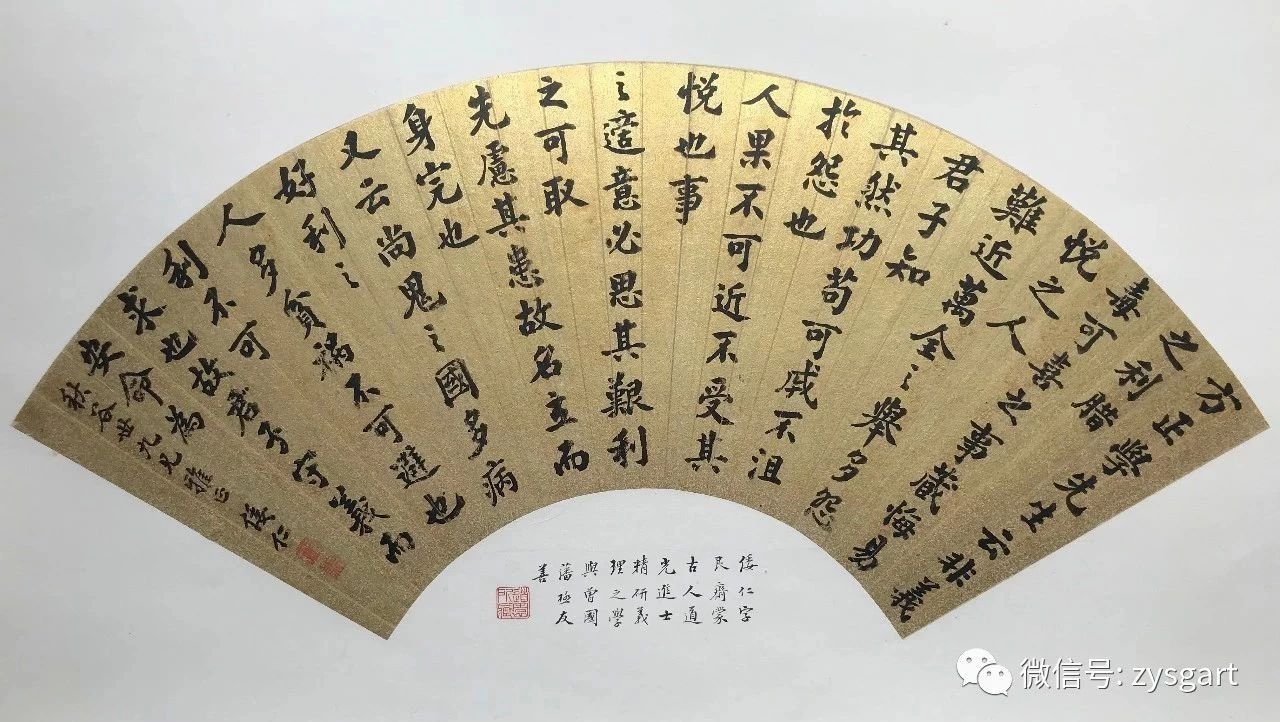 方正學先生云非義
之利腊
毒可喜之事藏悔易
悦之人
難近萬全之舉多怨
君子知
其然功苟可成不沮
於怨也
人果不可近不受其
悦也事
之適意必思其艱利
之可取
先慮其患故名立而
身完也
又云尚鬼之國多病
好利之
人多貧禍不可避也
利不可
求也故君子守義而
安命為
秋谷世九兄雅正 倭仁
倭仁字
艮齋蒙
古人道
光進士
精研義
理之學
與曾國
藩極友
善
微信号: zysgart